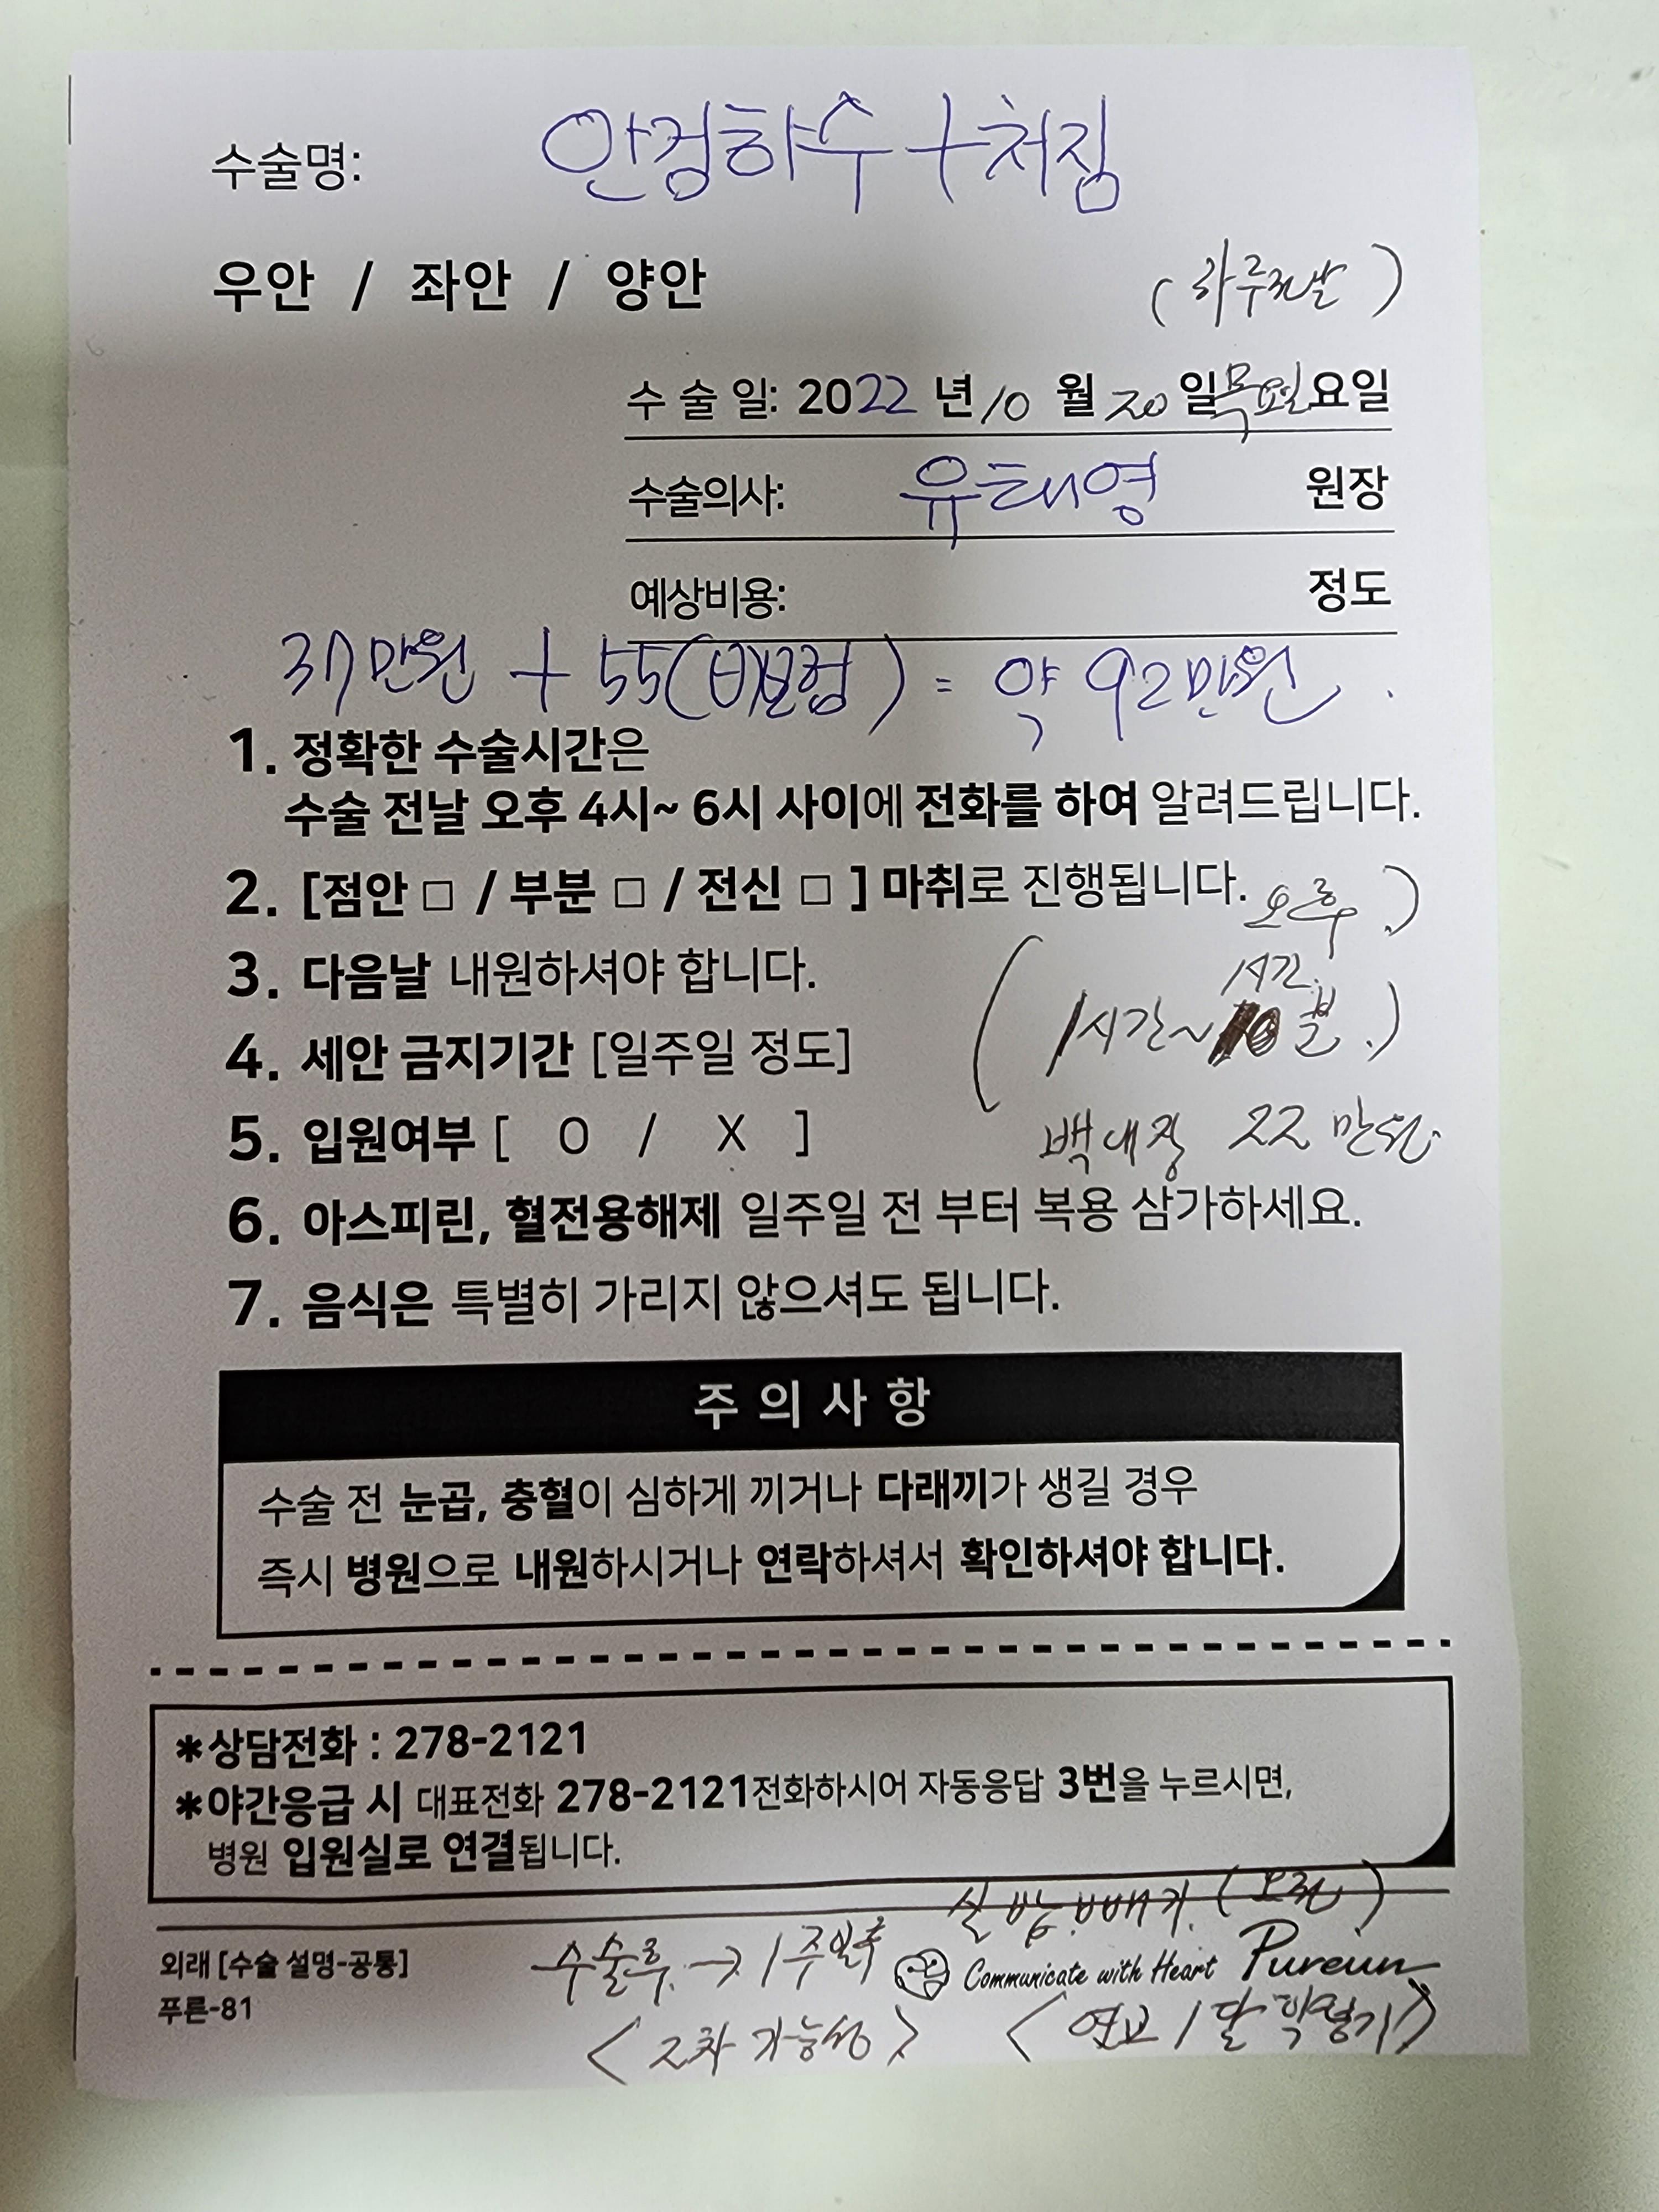 수술명: 안검하수 + 처짐
우안 / 좌안 / 양안
(하루전날)
수 술 일: 2022 년 10 월 20 일 목요일요일
수술의사: 유태영 원장
예상비용: 정도
37만원 + 55(비보험) = 약 92만원.
1. 정확한 수술시간은
수술 전날 오후 4시~ 6시 사이에 전화를 하여 알려드립니다.
2. [점안 □ / 부분 □ / 전신 □ ] 마취로 진행됩니다.
오후.)
3. 다음날 내원하셔야 합니다.
1시간.
(1시간~10분.)
4. 세안 금지기간 [일주일 정도]
5. 입원여부 [ O / X ]
백내장 22만원.
6. 아스피린, 혈전용해제 일주일 전 부터 복용 삼가하세요.
7. 음식은 특별히 가리지 않으셔도 됩니다.
주 의 사 항
수술 전 눈곱, 충혈이 심하게 끼거나 다래끼가 생길 경우
즉시 병원으로 내원하시거나 연락하셔서 확인하셔야 합니다.
*상담전화 : 278-2121
*야간응급 시 대표전화 278-2121전화하시어 자동응답 3번을 누르시면,
병원 입원실로 연결됩니다.
실밥.빼기.(오전)
수술후. → 1주일후
외래 [수술 설명-공통]
Communicate with Heart Pureun
푸른-81
<2차 가능성>
<연고 1달>